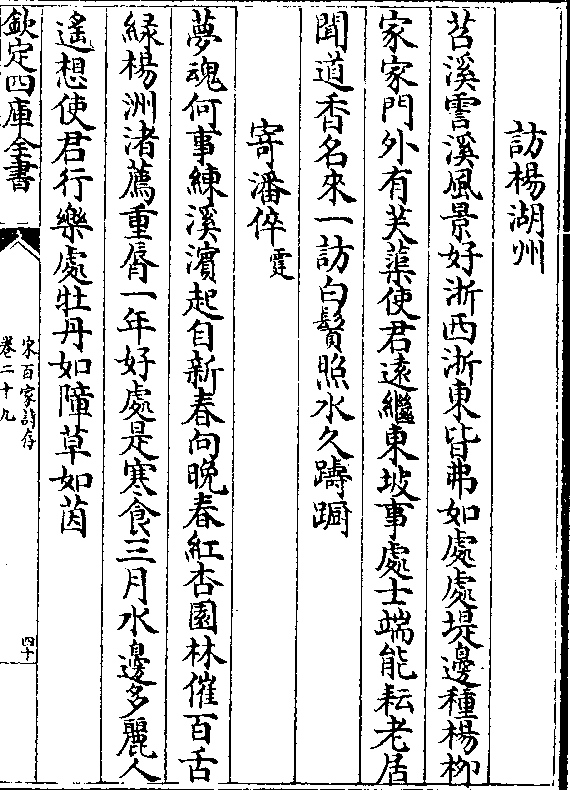 訪楊湖州
苕溪霅溪風景好浙西浙東皆弗如處處堤邊種楊柳
家家門外有芙蕖使君遠繼東坡事處士端能耘老居
聞道香名來一訪白鬚照水久躊躕
寄潘倅霆
夢魂何事練溪濵起自新春向晚春紅杏園林催百舌
緑楊洲渚薦重脣一年好處是寒食三月水邊多麗人
遙想使君行樂處牡丹如障草如茵
欽定四庫全書
宋百家詩存
卷二十九
四十